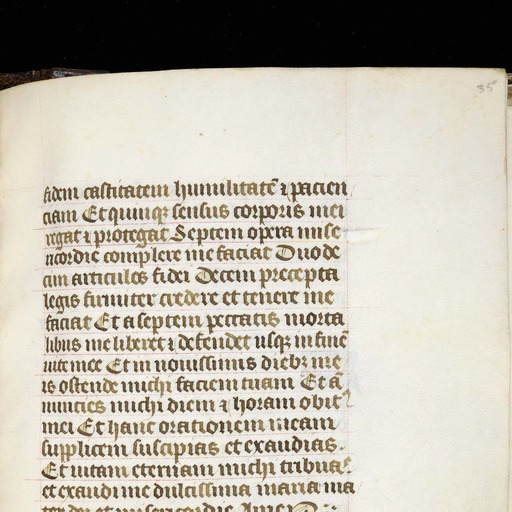 35
fidem castitatem humilitatē ⁊ pacien
ciam Et quinqꝫ sensus corporis mei
regat ⁊ protegat Septem opera mise
ricordie complere me faciat Duode
cim articulos fidei Decem precepta
legis firmiter credere et tenere me
faciat Et a septem peccatis morta
libus me liberet ⁊ defendet usqꝫ in finē
vite mee Et in nouissimis diebꝫ me
is ostende michi faciem tuam Et ā
nuncies michi diem ⁊ horam obit᷒
mei Et hanc orationem meam
supplicem suscipias et exaudias.
Et uitam eternam michi tribuas.
et exaudi me dulcissima maria ma
ter dei et misericordie Amen